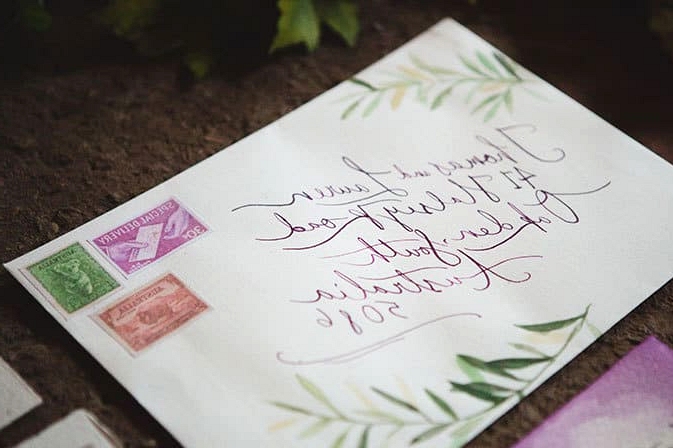 Thomas and Lauren
41 Halsey Road
Oakden, South
Australia
5086
SPECIAL DELIVERY
30¢
AUSTRALIA